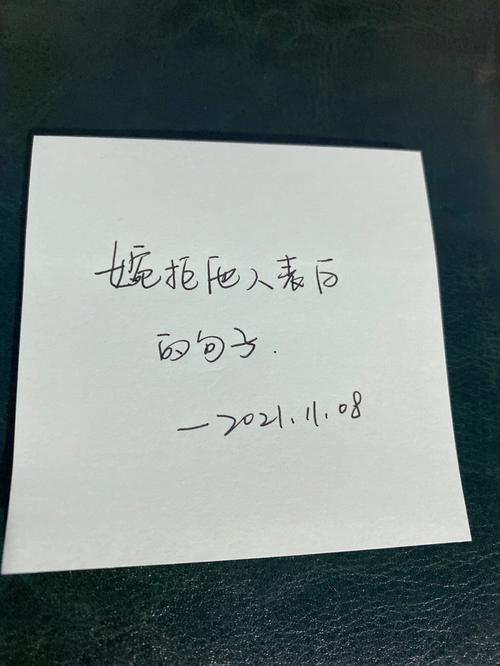 婉拒他人表白
的句子.
—2021.11.08